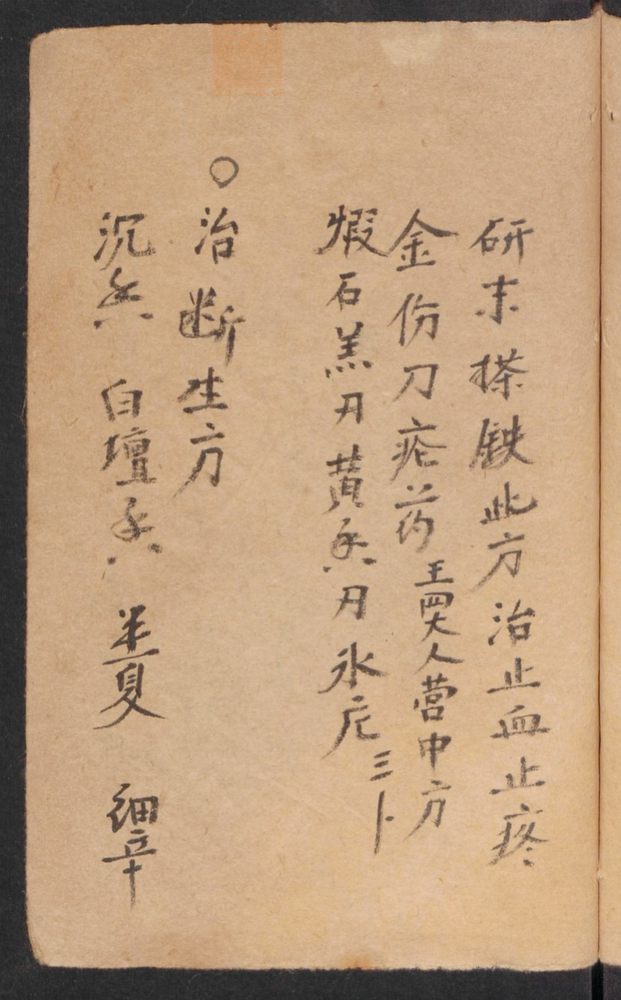 研末搽鉄此方治止血止疼
金伤刀疮药 王四大人营中方
煆石羔 黄香 氷片 三卜
〇治断生方
沉香 白壇香 半夏 细辛